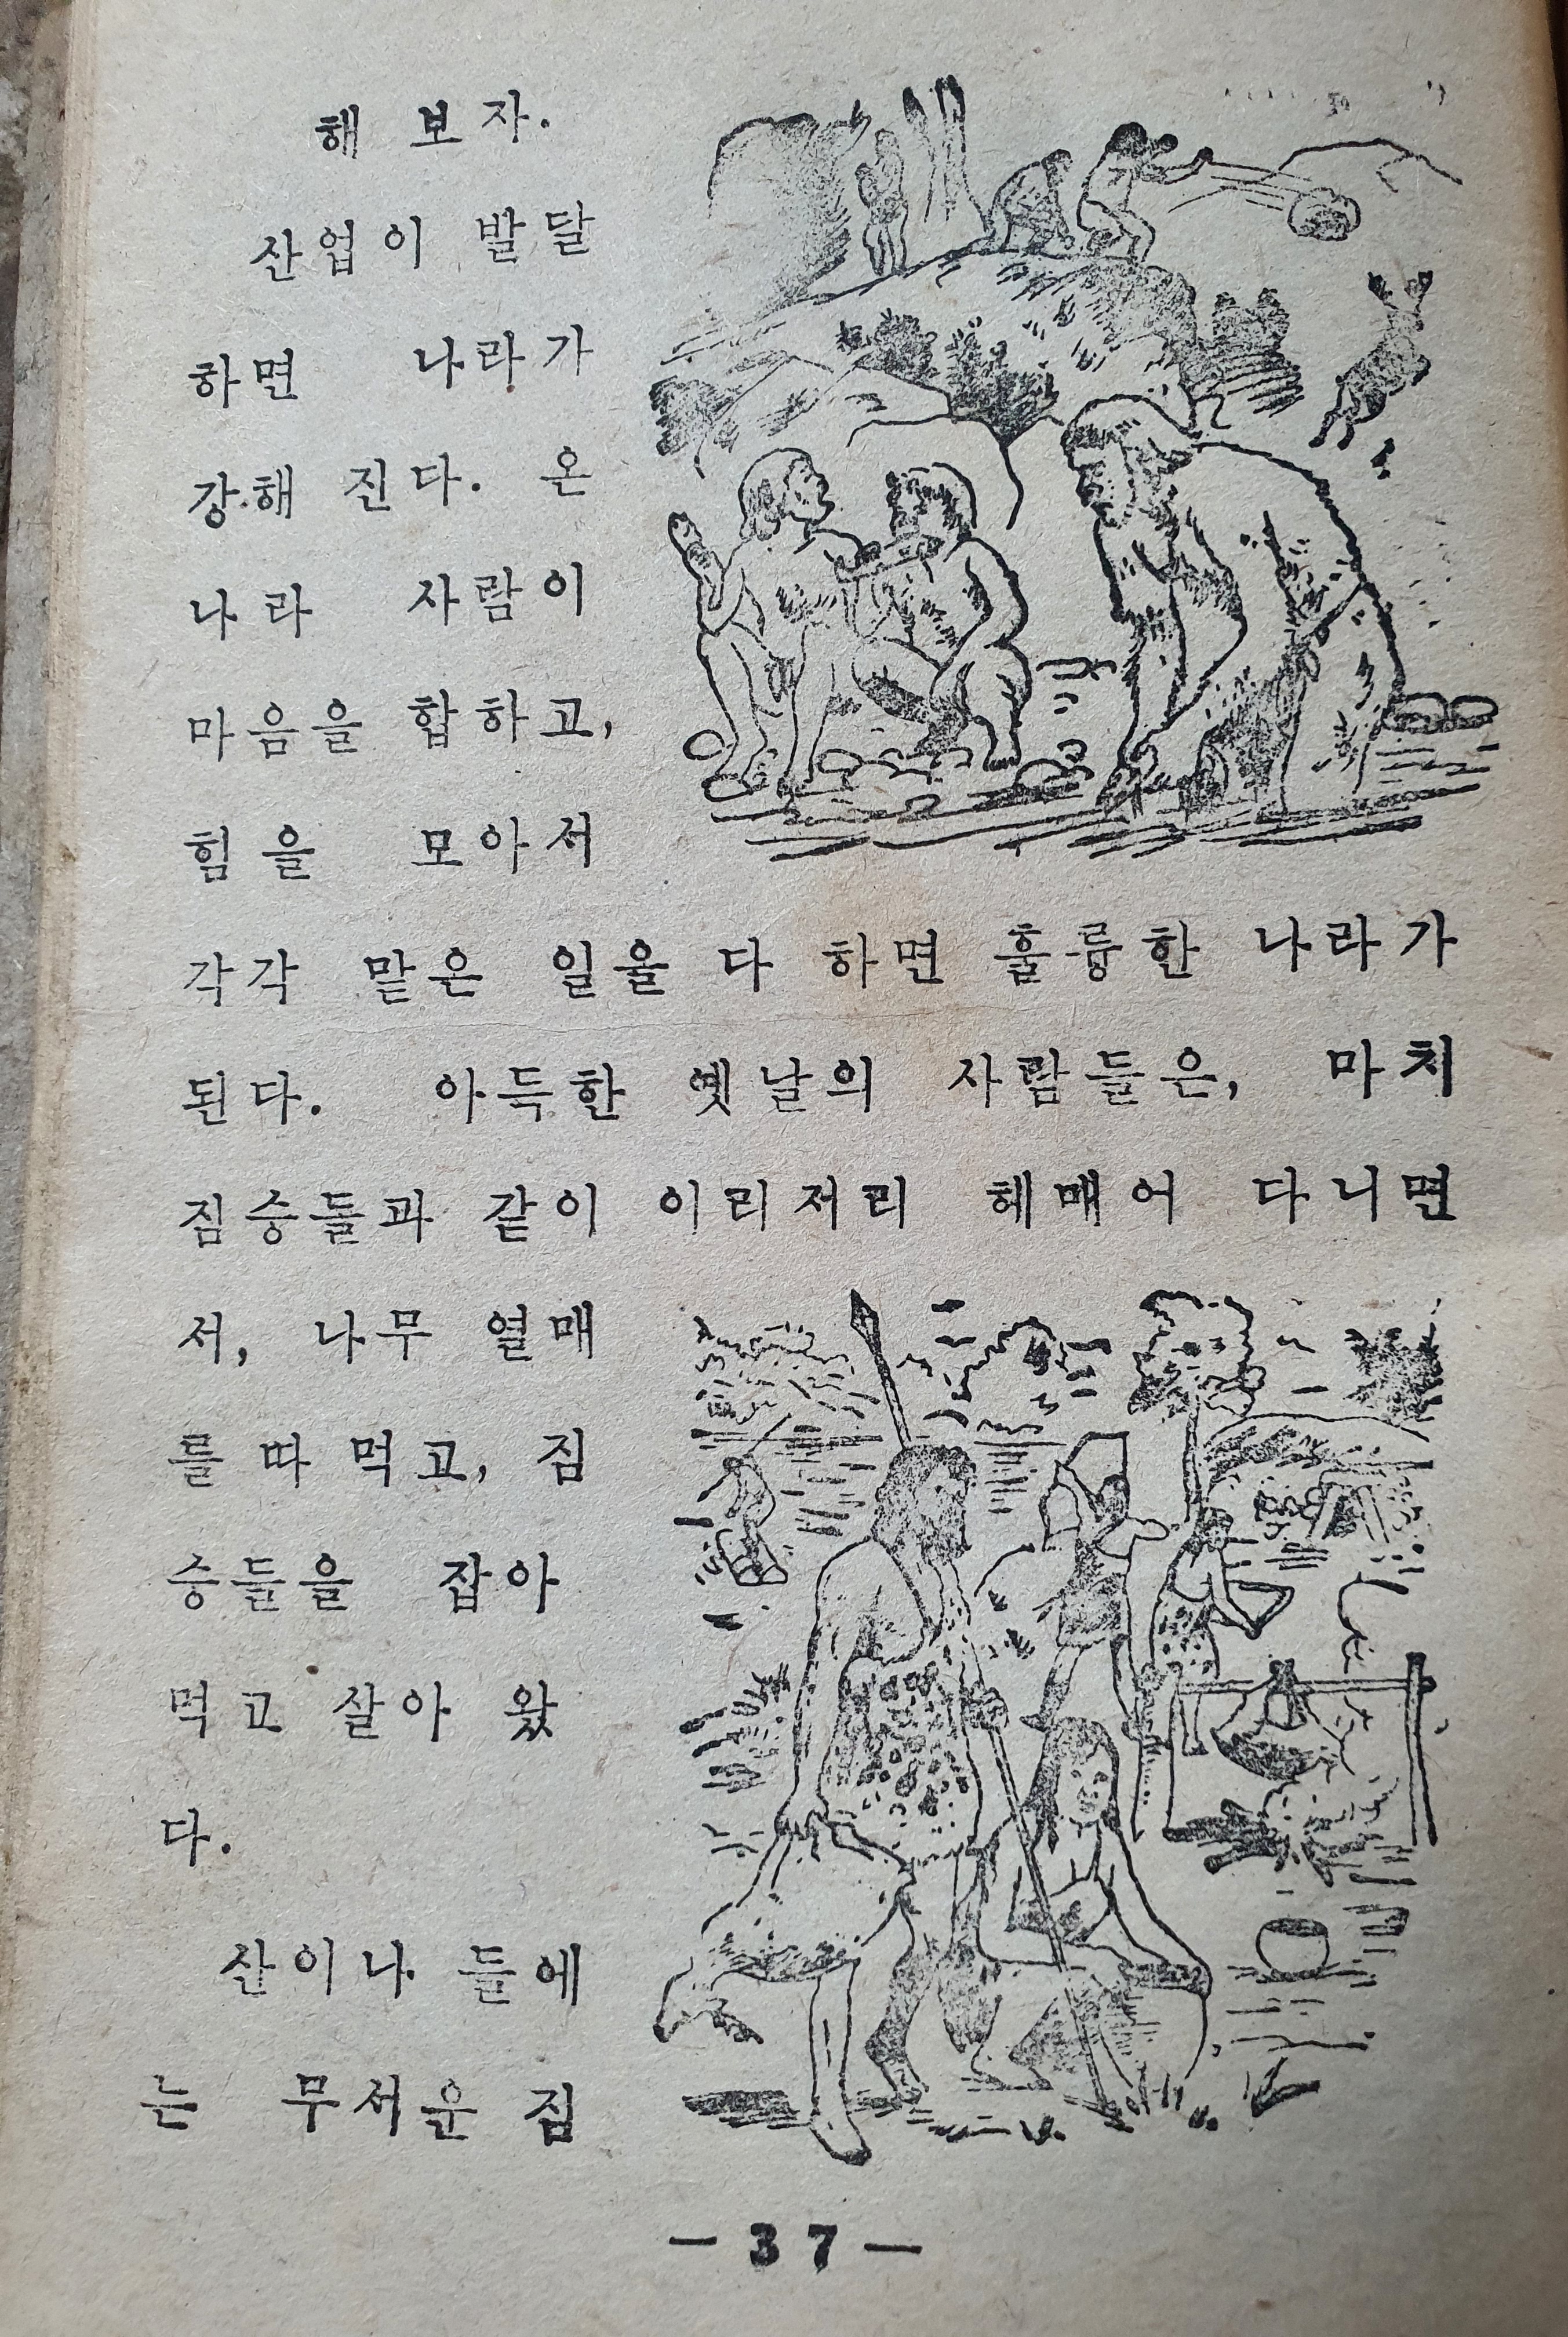 해 보자.
산업이 발달
하면 나라가
강해 진다. 온
나라 사람이
마음을 합하고,
힘을 모아서
각각 맡은 일을 다 하면 훌륭한 나라가
된다. 아득한 옛날의 사람들은, 마치
짐승들과 같이 이리저리 헤매어 다니면
서, 나무 열매
를 따 먹고, 짐
승들을 잡아
먹고 살아 왔
다.
산이나 들에
는 무서운 짐
— 37 —